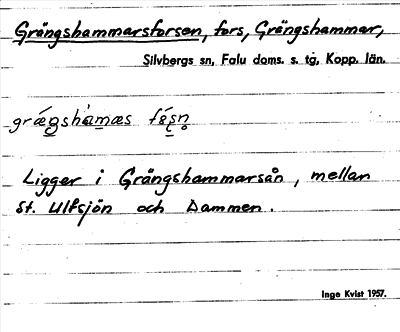 Grängshammarsforsen, fors, Grängshammar,
Silvbergs sn, Falu doms. s. tg, Kopp. län.
Ligger i Grängshammarsån, mellan
St. Ulfsjön och Dammen.
Inga Kvist 1957.